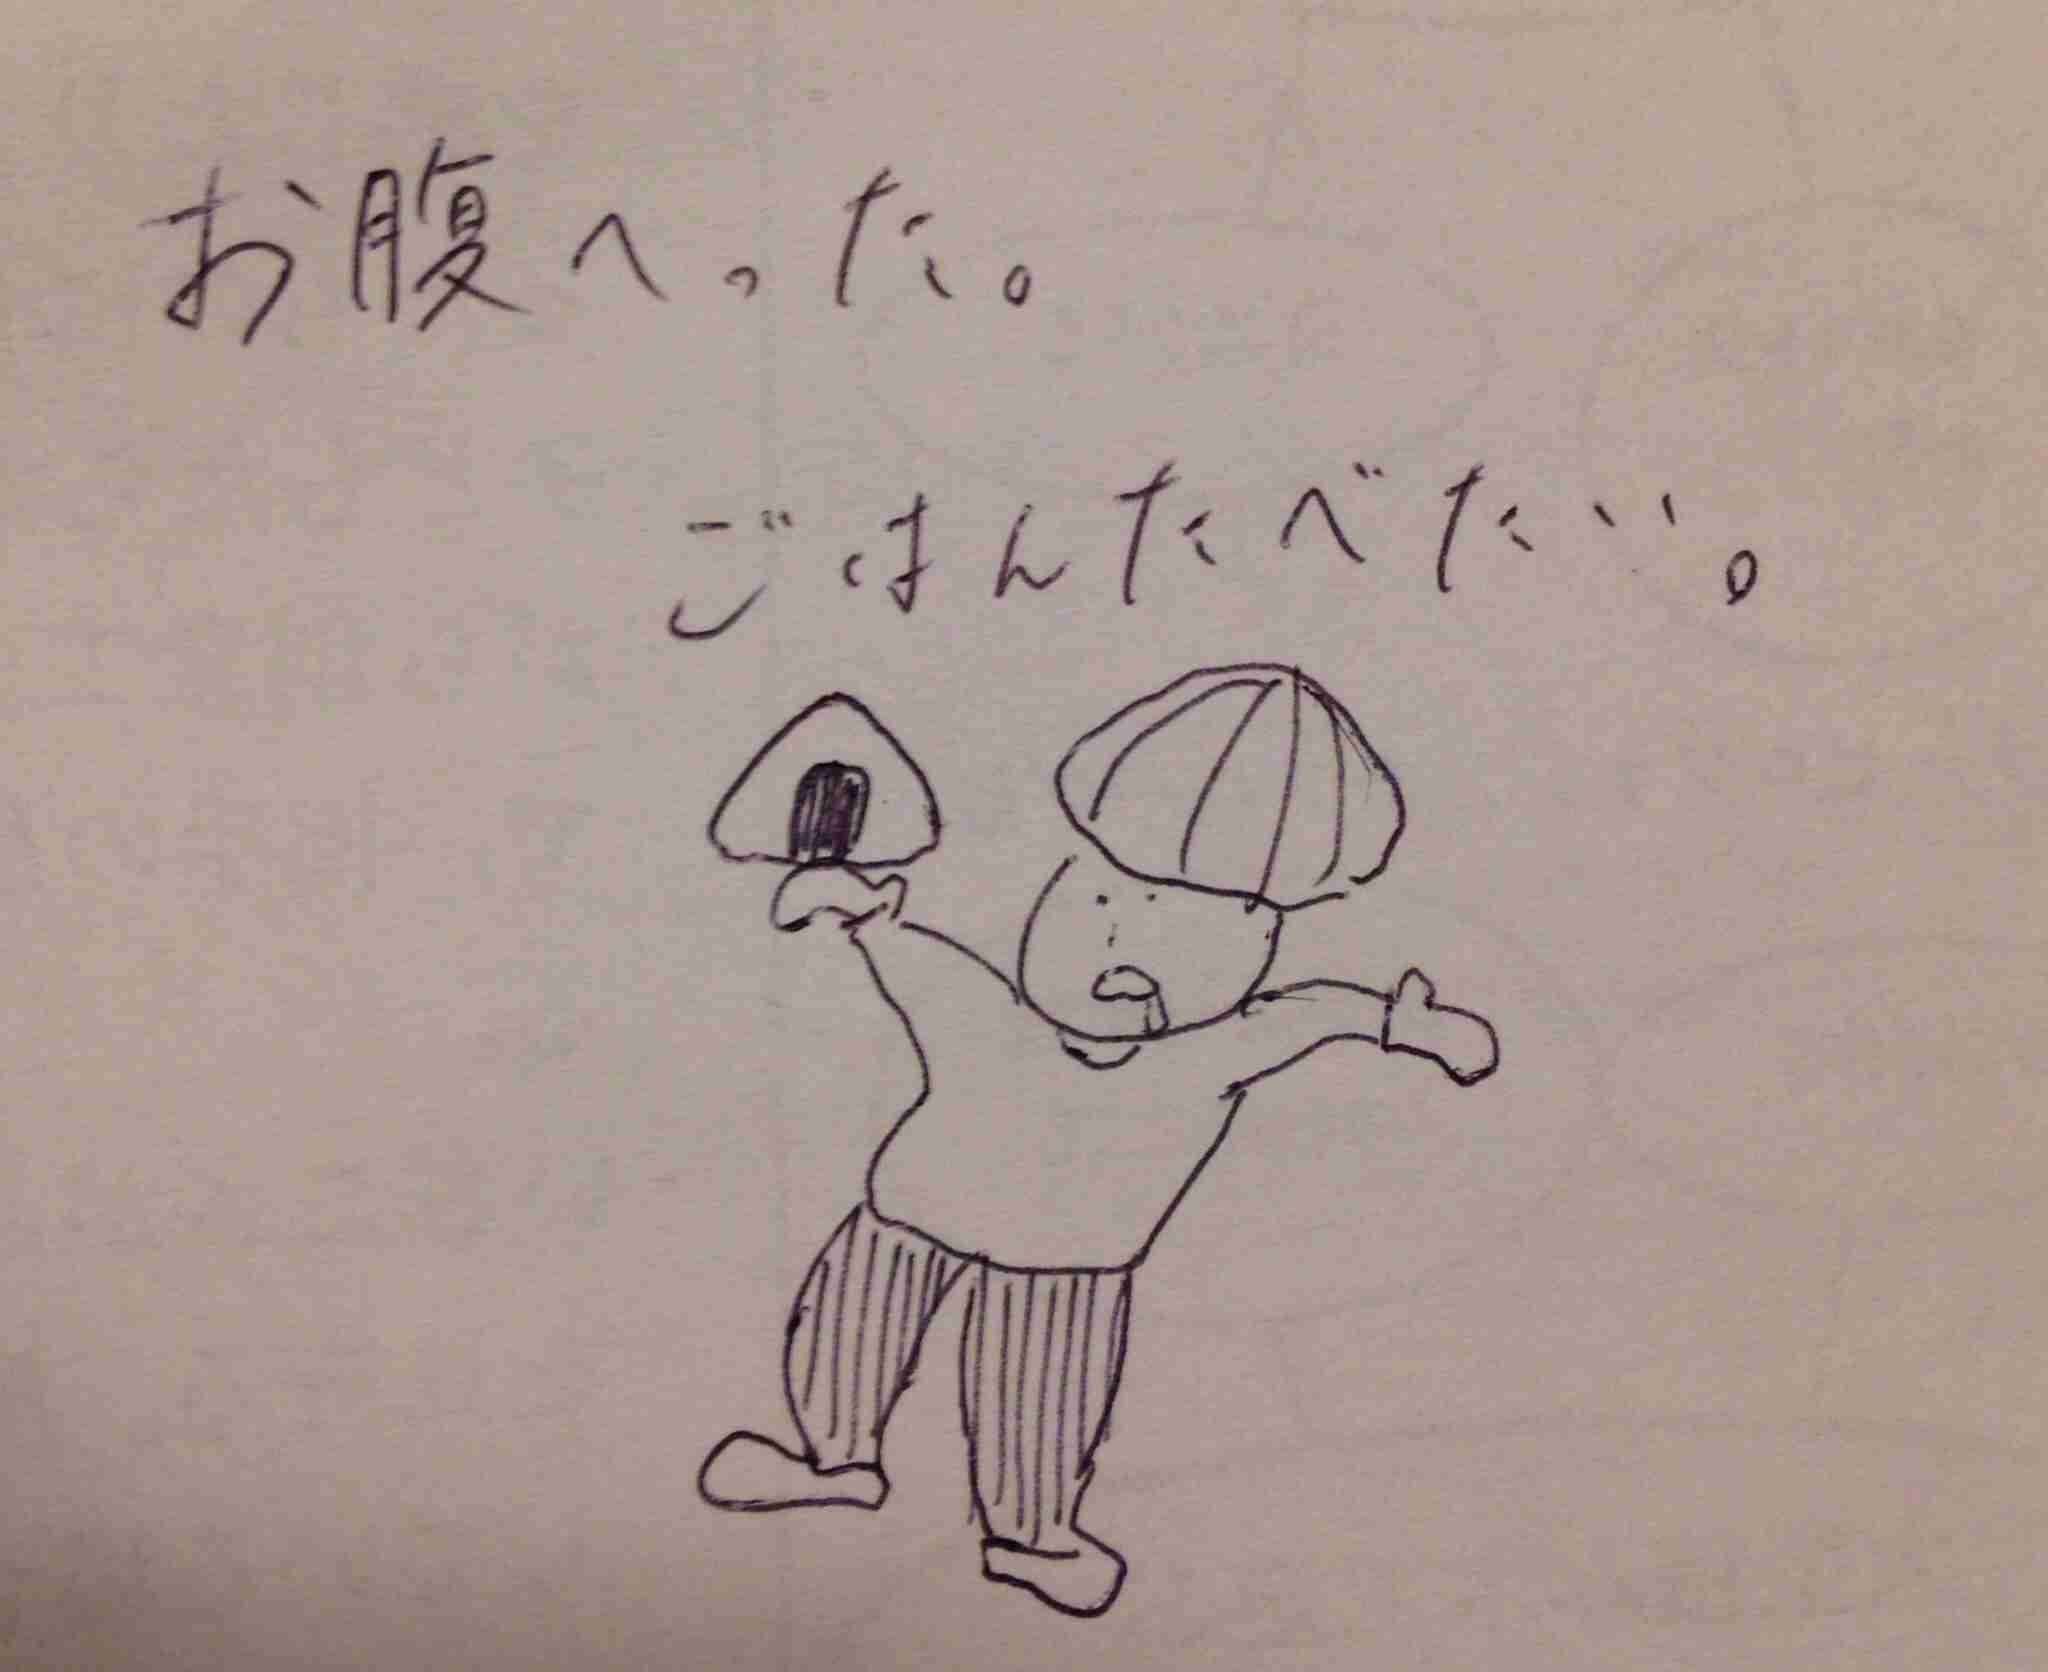 お腹へった。
ごはんたべたい。